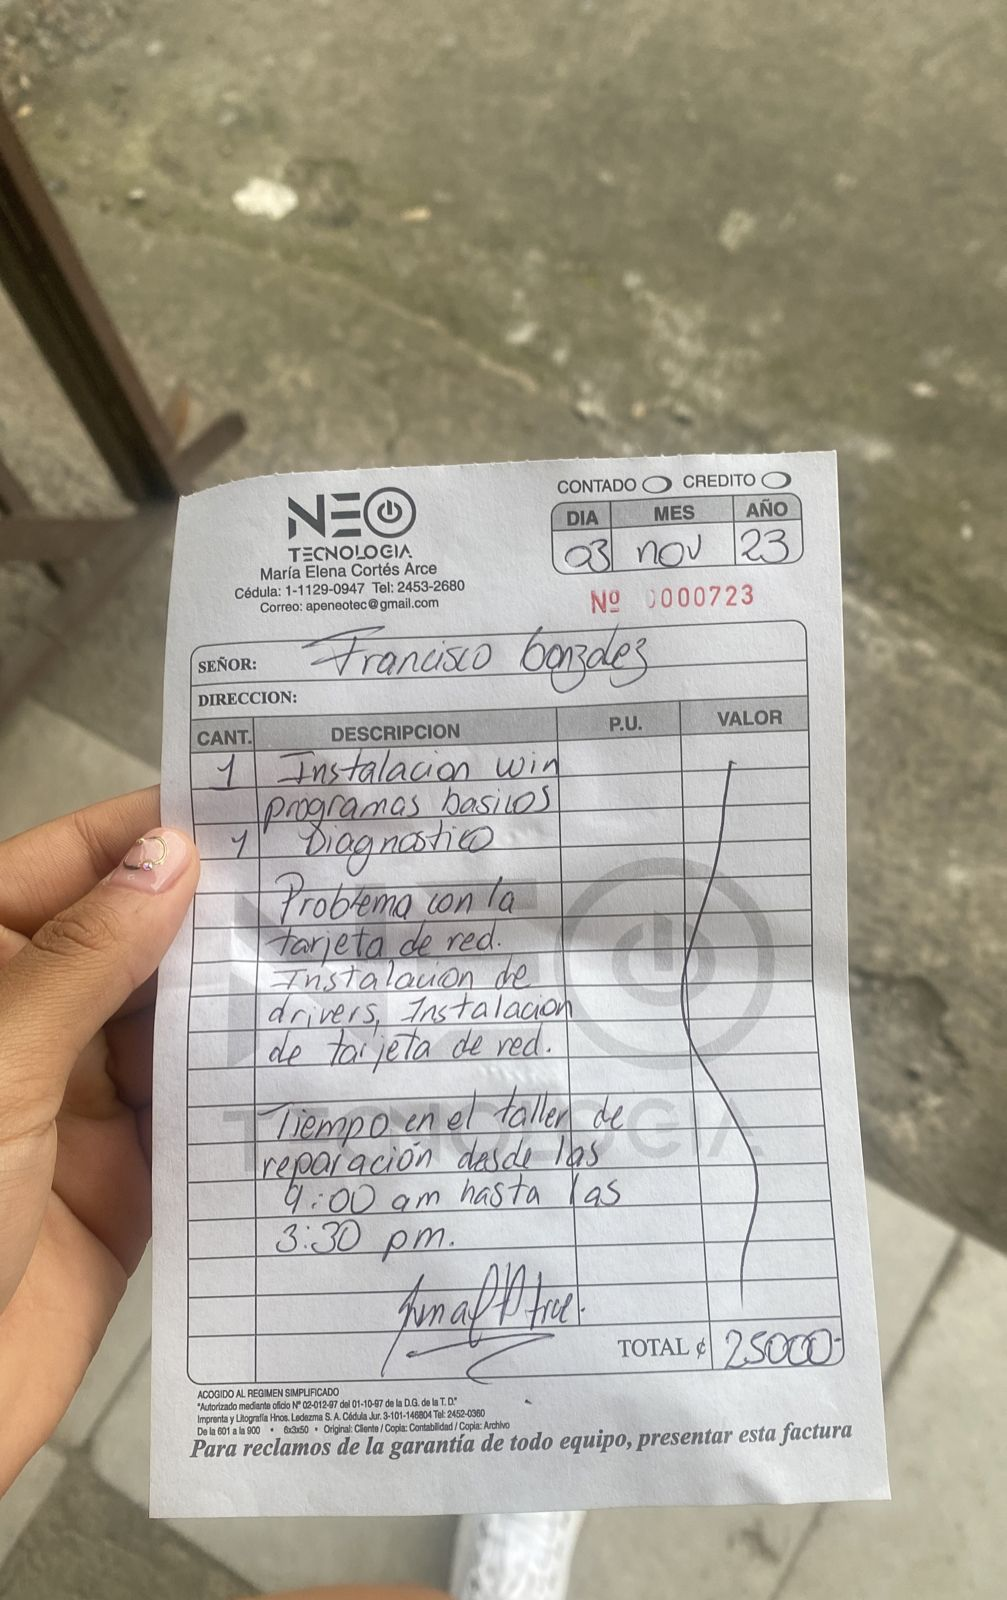 NEO
TECNOLOGIA
María Elena Cortés Arce
Cédula: 1-1129-0947 Tel: 2453-2680
Correo: apeneotec@gmail.com
CONTADO CREDITO
DIA MES AÑO
03 nov 23
Nº 0000723
SEÑOR: Francisco Gonzalez
DIRECCION:
CANT. DESCRIPCION P.U. VALOR
1 Instalacion win
programas basicos
1 Diagnostico
Problema con la
tarjeta de red.
Instalacion de
drivers, Instalacion
de tarjeta de red.
Tiempo en el taller de
reparación desde las
9:00 am hasta las
3:30 pm.
TOTAL ¢ 25000
ACOGIDO AL REGIMEN SIMPLIFICADO
"Autorizado mediante oficio Nº 02-012-97 del 01-10-97 de la D.G. de la T. D."
Imprenta y Litografía Hnos. Ledezma S. A. Cédula Jur. 3-101-146804 Tel: 2452-0360
De la 601 a la 900 • 6x3x50 • Original: Cliente / Copia: Contabilidad / Copia: Archivo
Para reclamos de la garantía de todo equipo, presentar esta factura
NEO
TECNOLOGIA